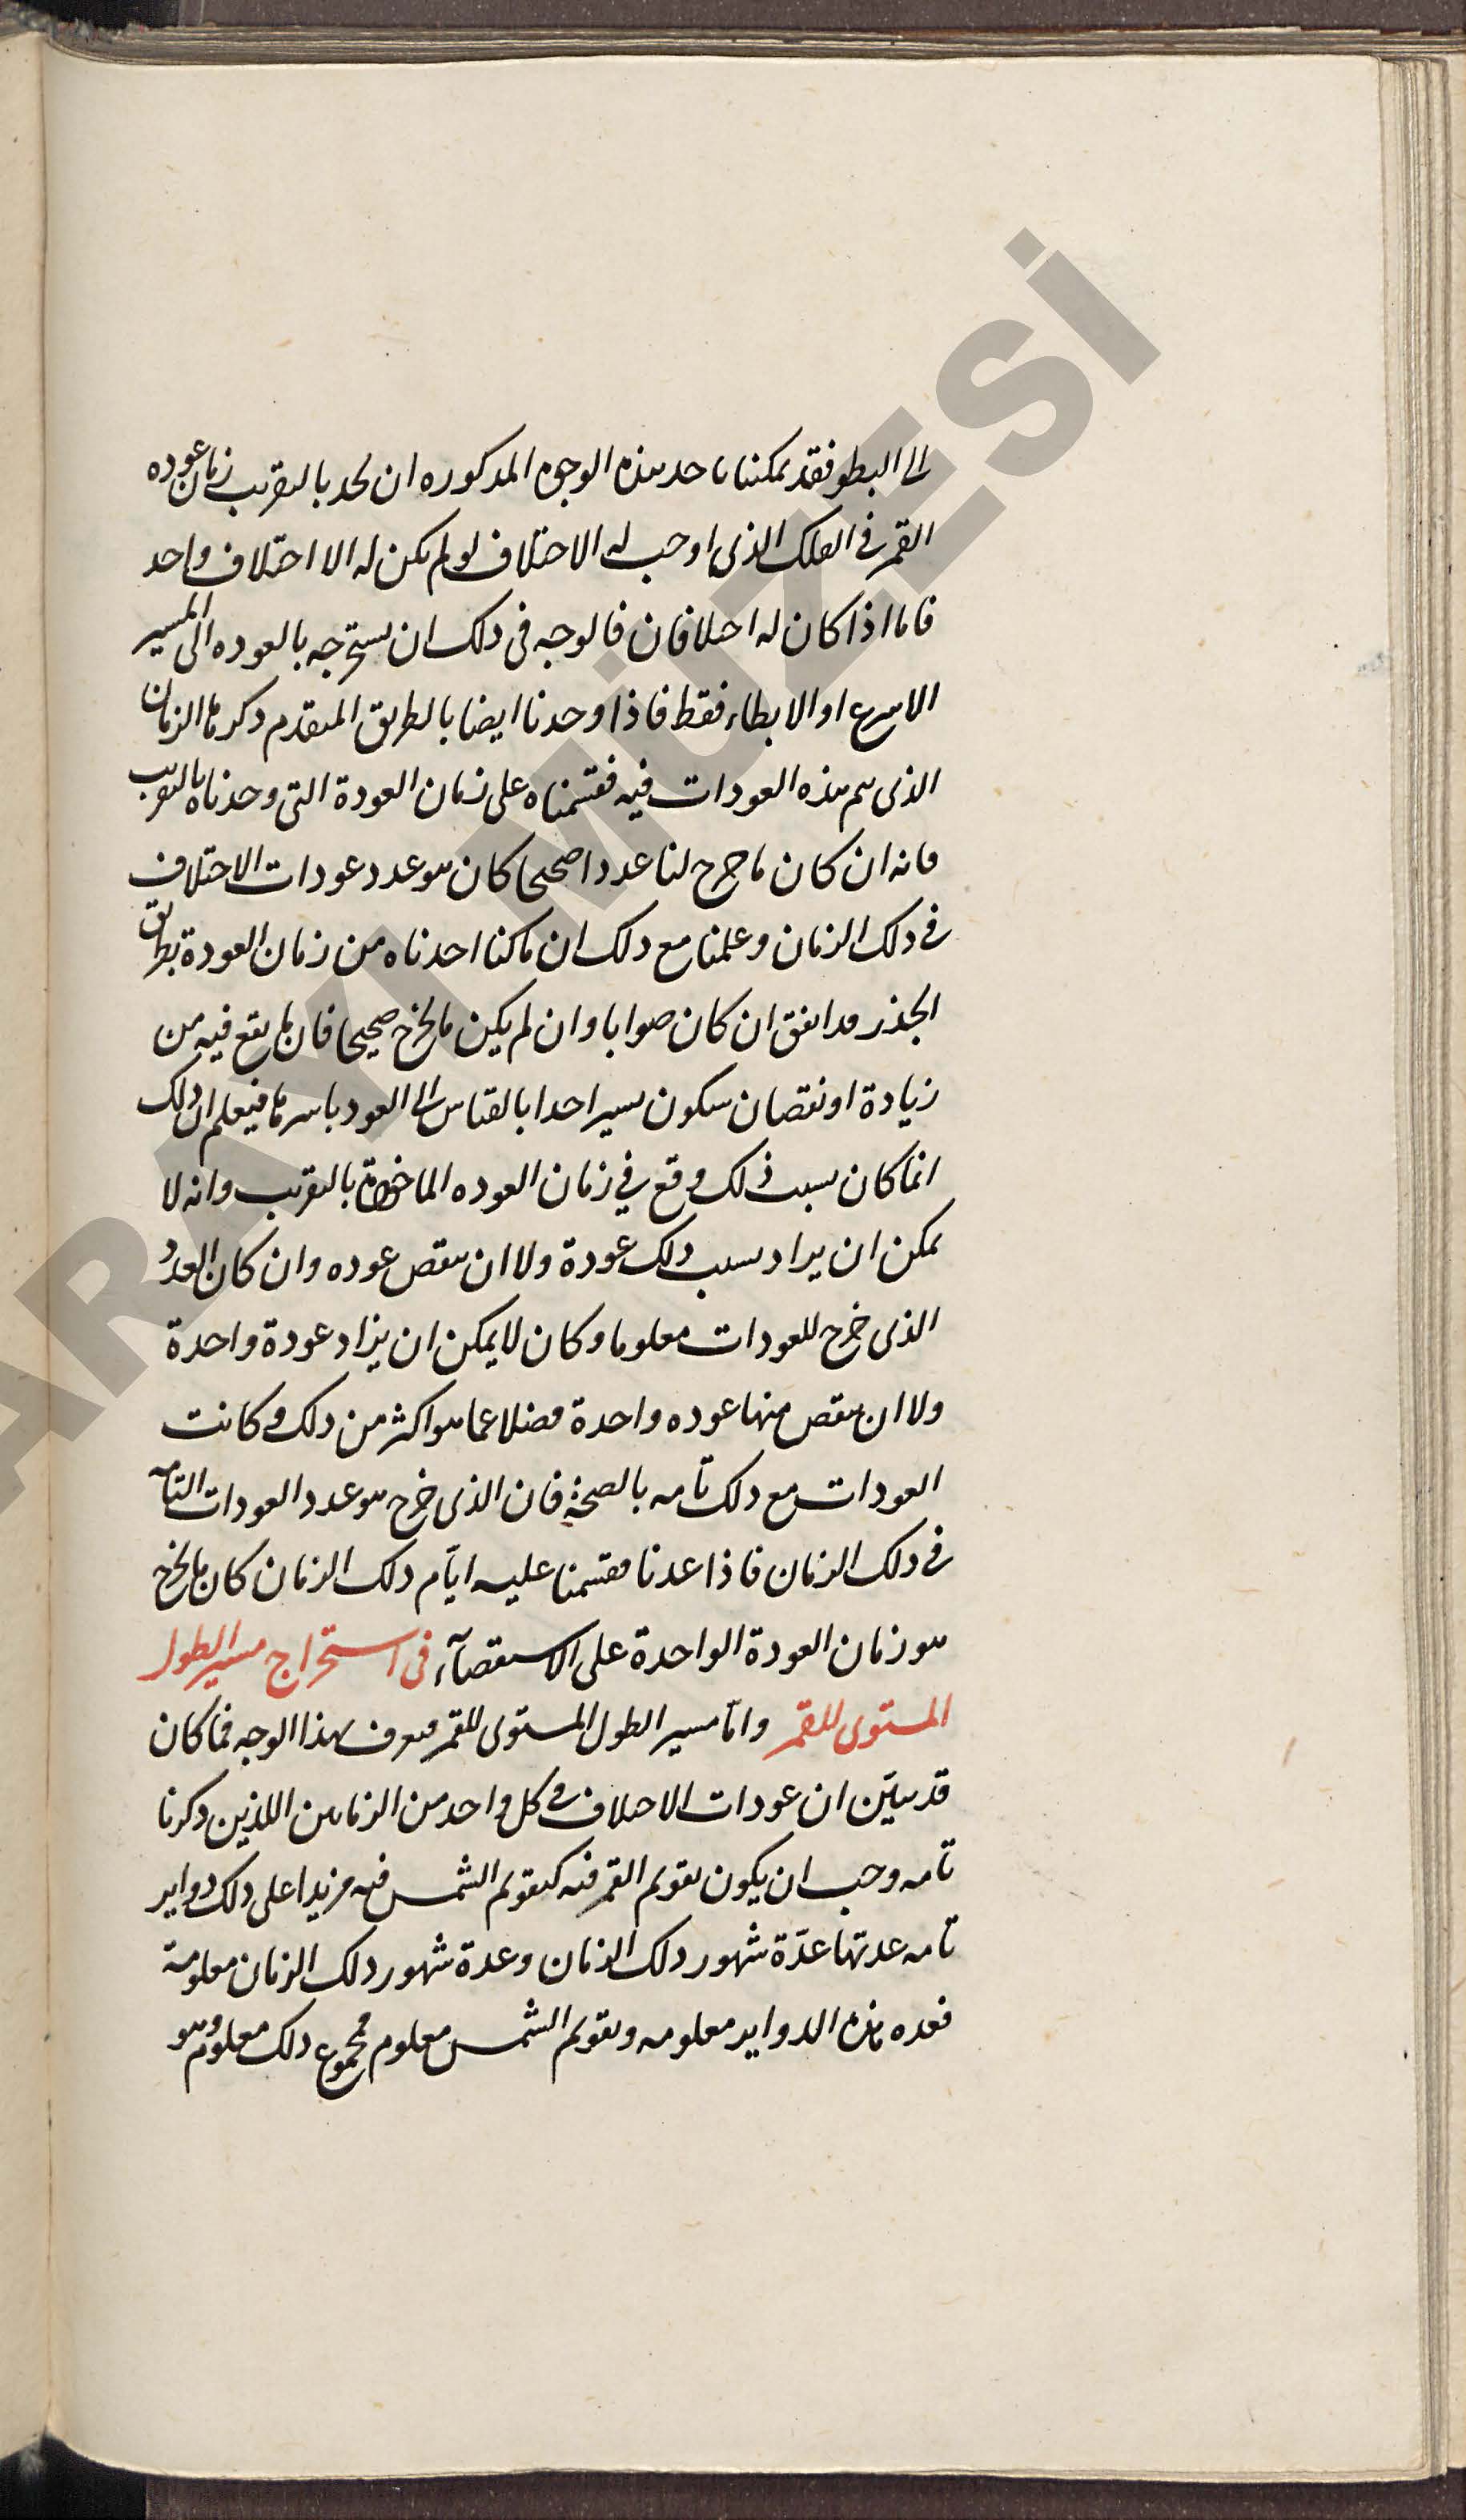 الى البطو فقد يمكننا باحد هذه الوجوه المذكوره ان نحد بالتقريب زمان عوده
القمر في الفلك الذى اوجب له الاختلاف لو لم يكن له الا اختلاف واحد
فاما اذا كان له اختلافان فالوجه فى ذلك ان نستخرجه بالعوده الى المسير
الاسرع او الابطاء فقط فاذا وجدنا ايضا بالطريق المتقدم ذكرها الزمان
الذى يتم هذه العودات فيه فقسمناه على زمان العودة التى وجدناه بالتقريب
فانه ان كان ما خرج لنا عددا صحيحا كان هو عدد عودات الاختلاف
فى ذلك الزمان وعلمنا مع ذلك ان ما كنا اخذناه من زمان العودة بطريق
الجذر قد اتفق ان كان صوابا وان لم يكن ما يخرج صحيحا فان ما يقع فيه من
زيادة او نقصان سيكون يسيرا جدا بالقياس الى العود باسرها فيعلم ان ذلك
انما كان بسبب ذلك وقع في زمان العوده الماخوذة بالتقريب وانه لا
يمكن ان يزاد بسبب ذلك عودة ولا ان ينقص عوده وان كان العدد
الذى خرج للعودات معلوما وكان لا يمكن ان يزاد عودة واحدة
ولا ان ينقص منها عوده واحدة فضلا عما هو اكثر من ذلك وكانت
العودات مع ذلك تامه بالصحة فان الذى خرج هو عدد العودات التامه
فى ذلك الزمان فاذا عدنا فقسمنا عليه ايّام ذلك الزمان كان ما يخرج
هو زمان العودة الواحدة على الاستقصآء فى استخراج مسير الطول
المستوى للقمر وامّا مسير الطول المستوى للقمر فيعرف بهذا الوجه فما كان
قد تبيّن ان عودات الاختلاف فى كل واحد من الزمانين اللذين ذكرنا
تامه وجب ان يكون تقويم القمر فيه كتقويم الشمس فيه مزيدا على ذلك دواير
تامه عدتها عدّة شهور ذلك الزمان وعدة شهور ذلك الزمان معلومة
فعده هذه الدواير معلومه وتقويم الشمس معلوم فمجموع ذلك معلوم وهو